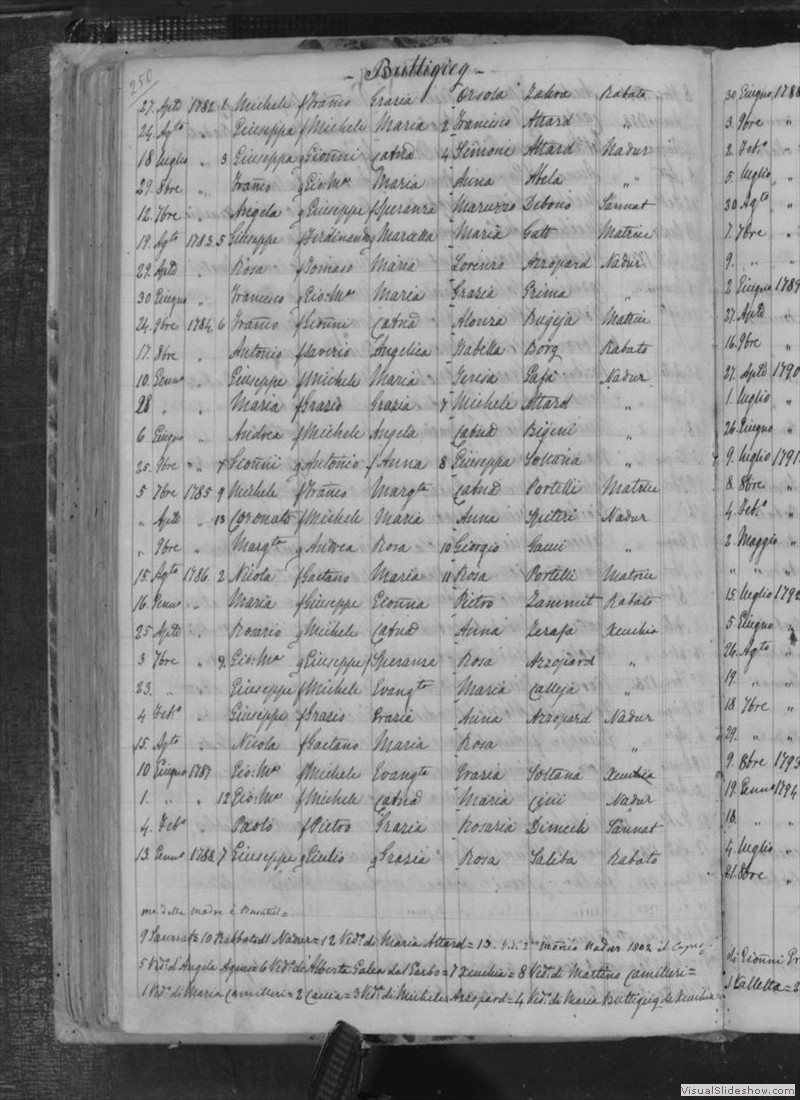 250
- Buttigieg -
27. Aple 1782. 1 Michele f Franco Grazia Orsola Zahra Rabato
24. Agto " Giuseppa f Michele Maria 2 Francesco Attard "
18 luglio " 3 Giuseppa g Gionni Catna 4 Simone Attard Nadur
29. 8bre " Franco g Gio: Ma Maria Anna Abela "
12. 7bre " Angela g Giuseppe f Speranza Maruzzo Debono Sannat
19. Agto 1783. 5 Giuseppe f Ferdinando g Marcella Maria Gatt Matrice
29. Aple " Rosa f Tomaso Maria Lorenzo Azzopard Nadur
30 Giugno " Francesco g Gio: Ma Maria Grazia Grima "
24. 9bre 1784. 6 Franco f Gionni Catna Alonza Bugeja Matrice
17. 8bre " Antonio f Saverio Angelica Isabella Borg Rabato
10. Genno " Giuseppe f Michele Maria Teresa Nadur
28 " " Maria f Grazio Grazia 7 Michele Attard "
6 Giugno " Andrea f Michele Angela Catna Bigeni "
25. 9bre " 7 Gionni g Antonio f Anna 8 Giuseppa Soltana "
5 7bre 1785 9 Michele f Franco Margta Catna Portelli Matrice
" Aple " 13 Coronato f Michele Maria Anna Spiteri Nadur
" 9bre " Margta g Andrea Rosa 10 Giorgio Gauci "
15. Agto 1786. 2 Nicola f Gaetano Maria 11 Rosa Portelli Matrice
16. Genno " Maria f Giuseppe Gionna Pietro Zammit Rabato
25 Aple " Rosario g Michele Catna Anna Zerafa Xeuchia
3 7bre " 9. Gio: Ma g Giuseppe f Speranza Rosa Azzopard "
23. " Giuseppe f Michele Evangta Maria Calleja "
4 Febo " Giuseppe f Grazio Grazia Anna Azzopard Nadur
15. Agto " Nicola f Gaetano Maria Rosa "
10 Giugno 1787 Gio: Ma f Michele Evangta Grazia Soltana Xeuchia
1. " " 12 Gio: Ma f Michele Catna Maria Cini Nadur
4. Febo " Paolo f Pietro Grazia Rosaria Dimech Sannat
13. Genno 1788. 7 Giuseppe g Giulio g Grazia Rosa Saliba Rabato
ma della madre è
9 Sannat = 10 Rabbato Nadur = 12 Vedo. di Maria Attard = 13. Nadur 1802 il
5 Vedo. d'Angela Agius = 6 Vedo. de Alberta Galea del Garbo = 7 Xeuchia = 8 Vedo. di Martino Camilleri =
1 Vedo. di Maria Camilleri = 2 Caccia = 3 Veda. di Michele Azzopard = 4 Vedo. di Maria Buttigieg di Xeuchia =
30 Giugno 1788
3. 9bre "
2. Febo "
5. luglio "
30 Agto "
7. 7bre "
9. "
2 Giugno 1789
27. Aple "
16. 9bre "
27. Aple 1790
1. luglio "
26. Giugno "
9. luglio 1791.
8 8bre "
4. Febo "
2. Maggio "
" " "
15 luglio 1792
5. Giugno "
26. Agto "
19. " "
18. 7bre "
29. " "
9. 8bre 1793
19. Genno 1794
18. " "
4. luglio "
21. 8bre "
di Gionni
1 Valletta = 2
VisualSlideshow.com